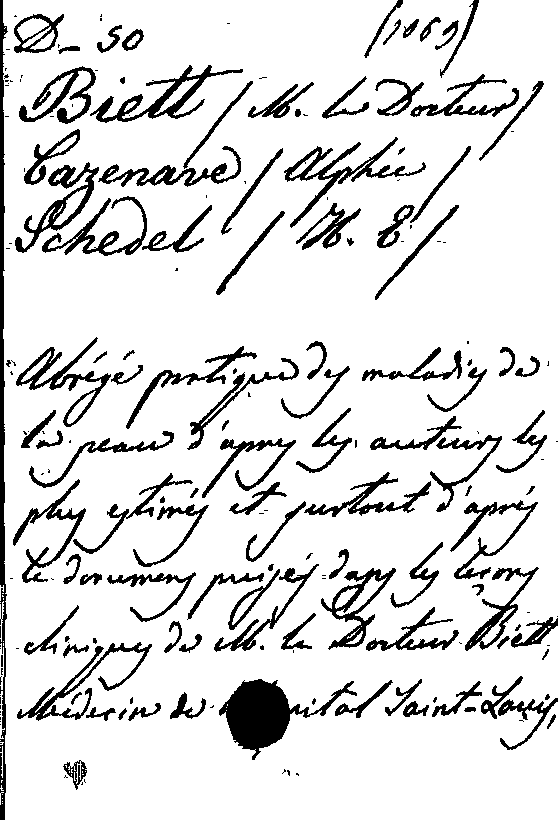 D_ 50 (1069)
Biett / M. le Docteur /
Cazenave / Alphée /
Schedel / H. E /
Abrégé pratique des maladies de
la peau d'après les auteurs les
plus estimés et surtout d'après
le documens puisés dans les leçons
cliniques de M. le Docteur Biett,
Médecin de Saint-Louis,